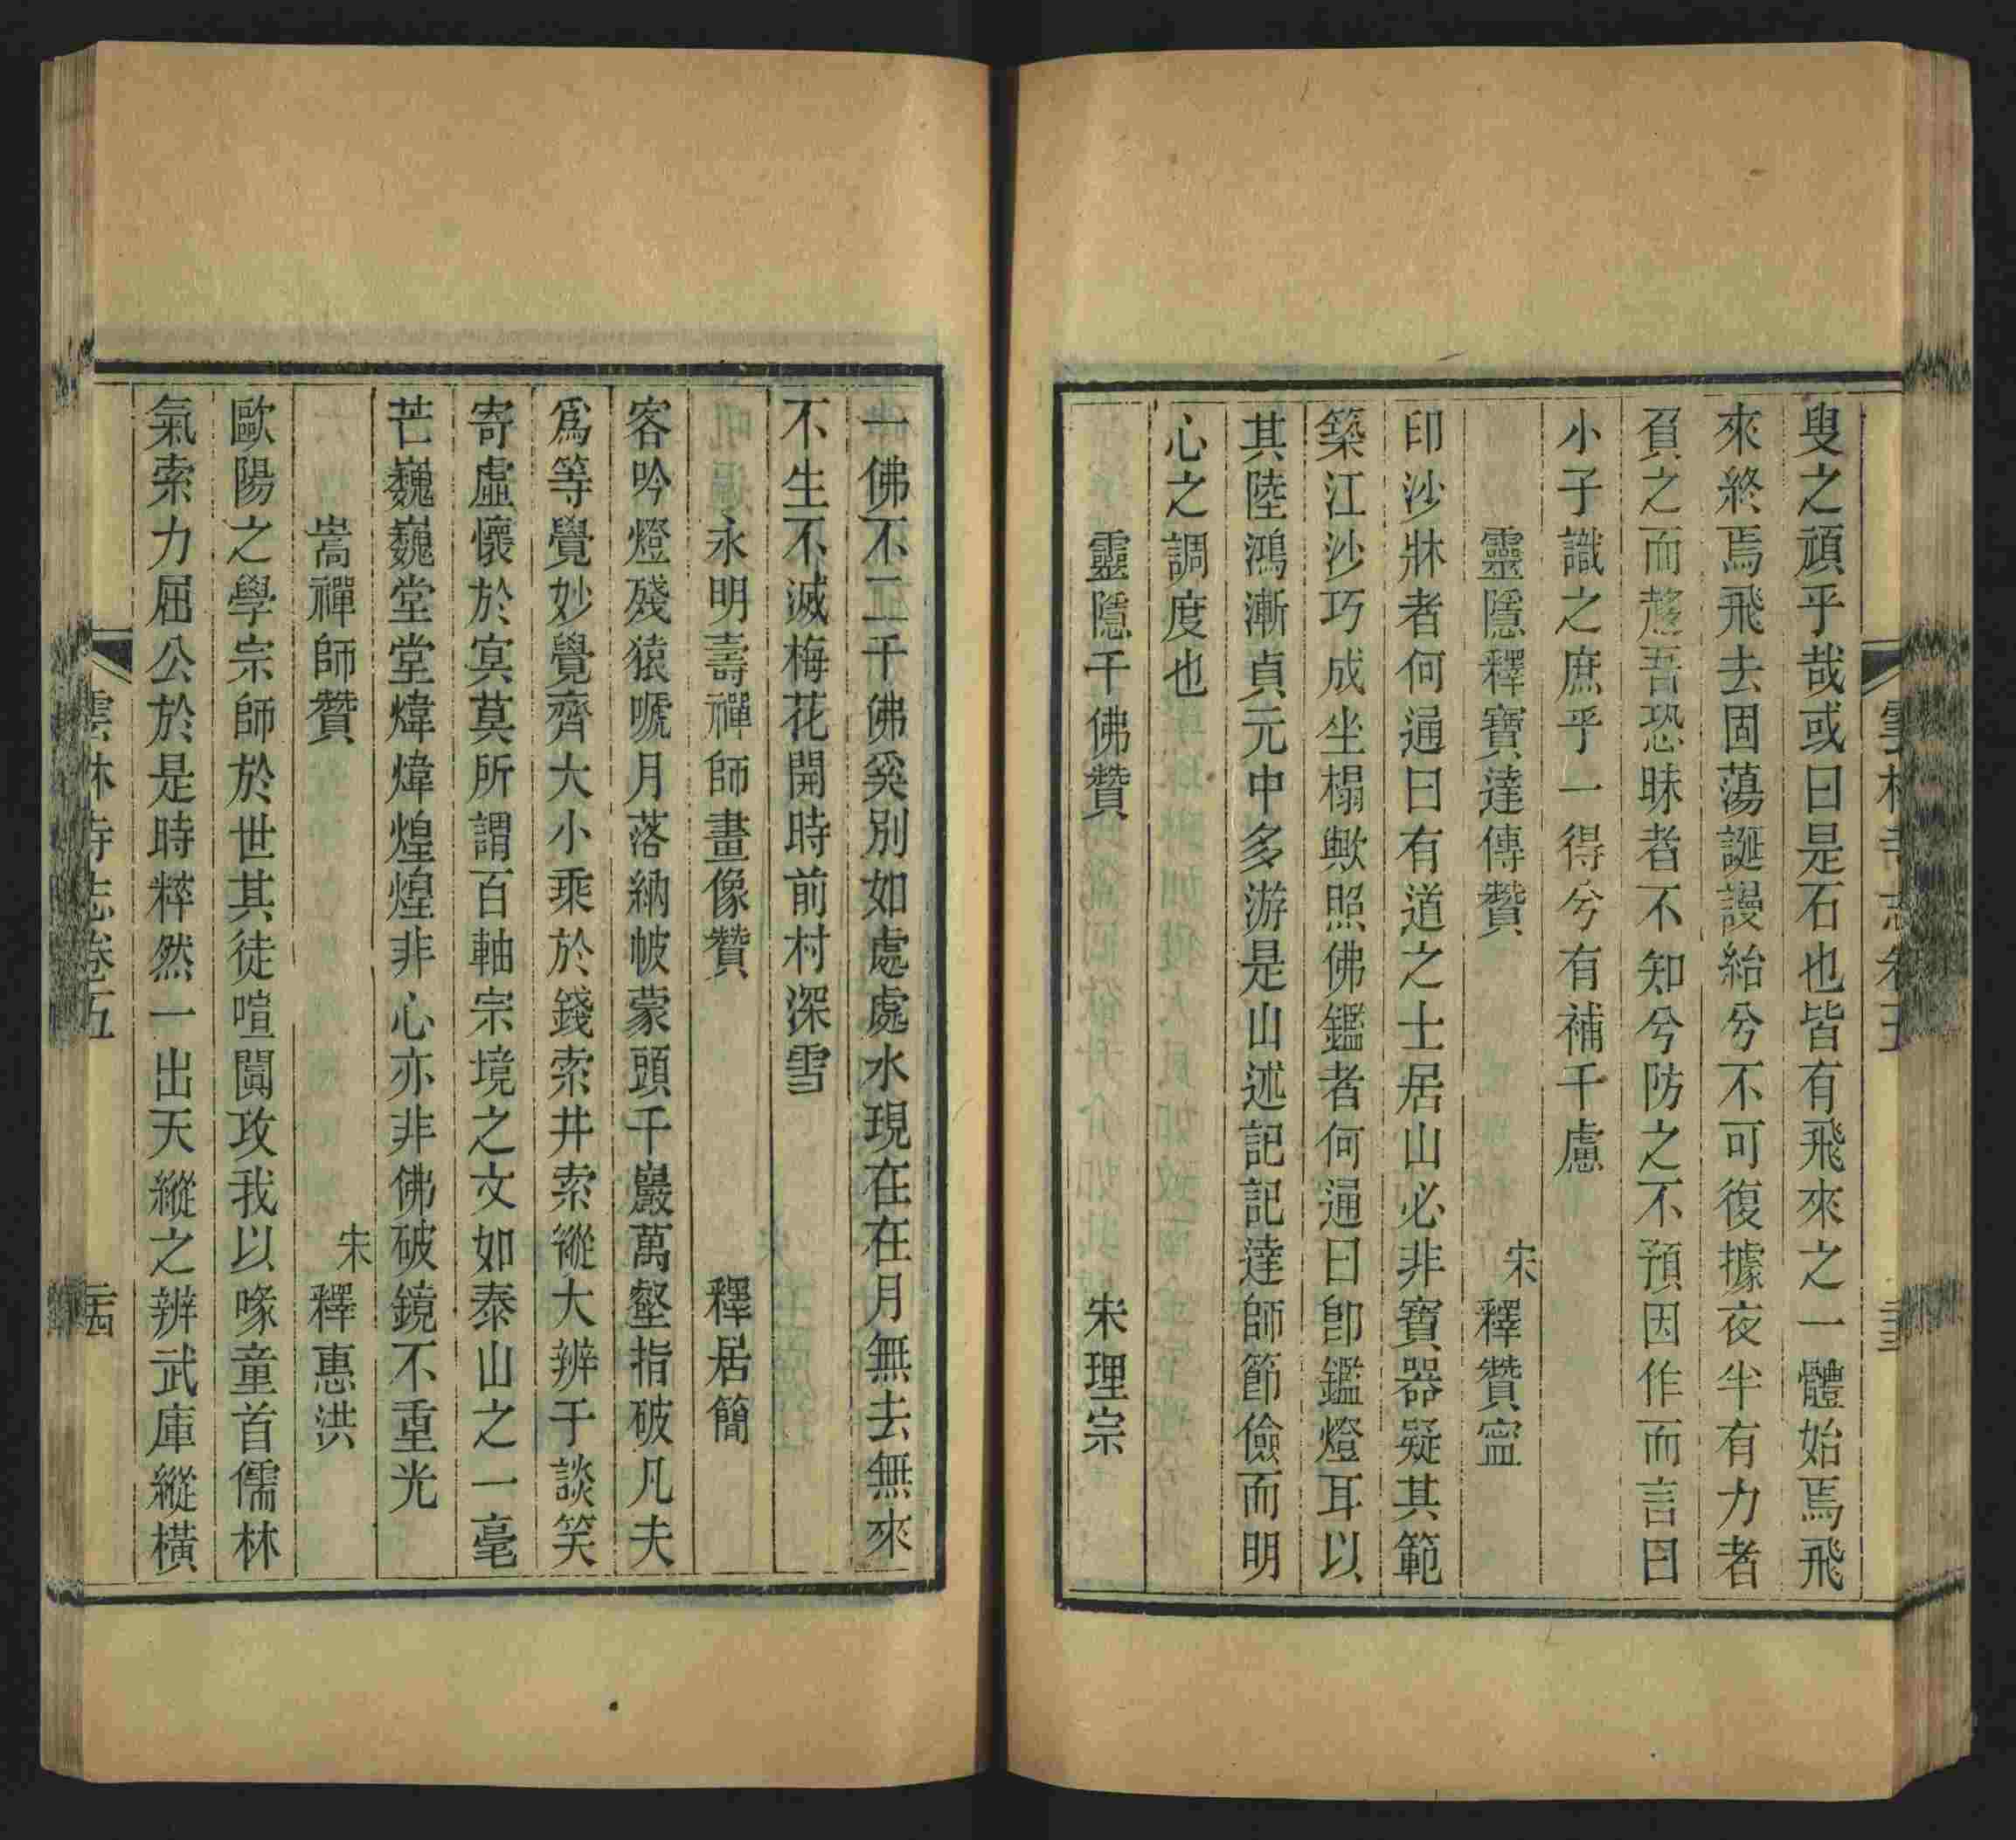 叟之頑乎哉或曰是石也皆有飛來之一體始焉飛
來終焉飛去固蕩誕謾紿兮不可復據夜半有力者
負之而趨吾恐昧者不知兮防之不預因作而言曰
小子識之庶乎一得兮有補千慮
靈隱釋寶達傳贊 宋釋贊寍
印沙牀者何通曰有道之士居山必非寶器疑其範
築江沙巧成坐榻歟照佛鑑者何通曰卽鑑燈耳以
其陸鴻漸貞元中多游是山述記記達師節儉而明
心之調度也
靈隱千佛贊 宋理宗
一佛不二千佛奚別如處處水現在在月無去無來
不生不滅梅花開時前村深雪
永明壽禪師畫像贊 釋居簡
客吟燈殘猿嗁月落納帔蒙頭千巖萬壑指破凡夫
爲等覺妙覺齊大小乘於錢索井索縱大辨于談笑
寄虛懷於寞莫所謂百軸宗境之文如泰山之一毫
芒巍巍堂堂煒煒煌煌非心亦非佛破鏡不重光
嵩禪師贊 宋釋惠洪
歐陽之學宗師於世其徒喧闐攻我以喙童首儒林
氣索力屈公於是時粹然一出天縱之辨武庫縱橫
雲林寺志卷五 二十四